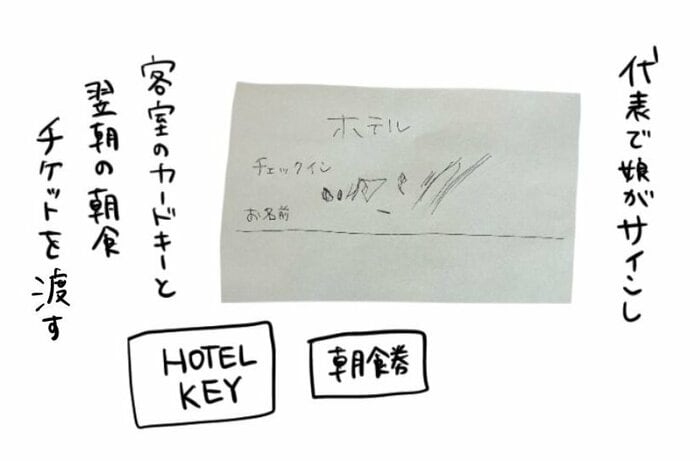 代表で娘がサインし
ホテル
チェックイン
お名前
客室のカードキーと
翌朝の朝食
チケットを渡す
HOTEL
KEY
朝食券